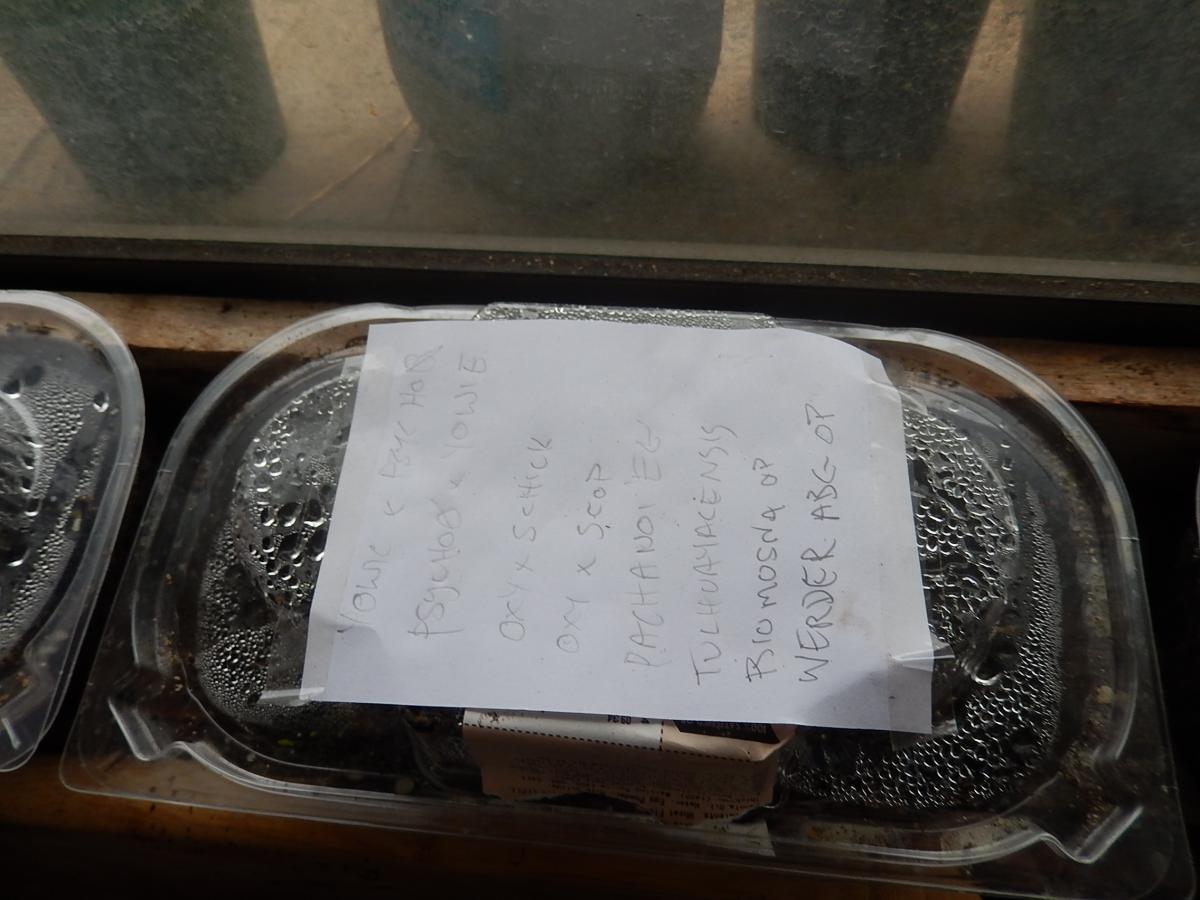 YOWIE x PSYCHO
PSYCHO x YOWIE
OXY x SCHICK
OXY x SCOP
PACHANOI EG
TULHUAYACENSIS
BIOMOSNA OP
WERDER ABG OP